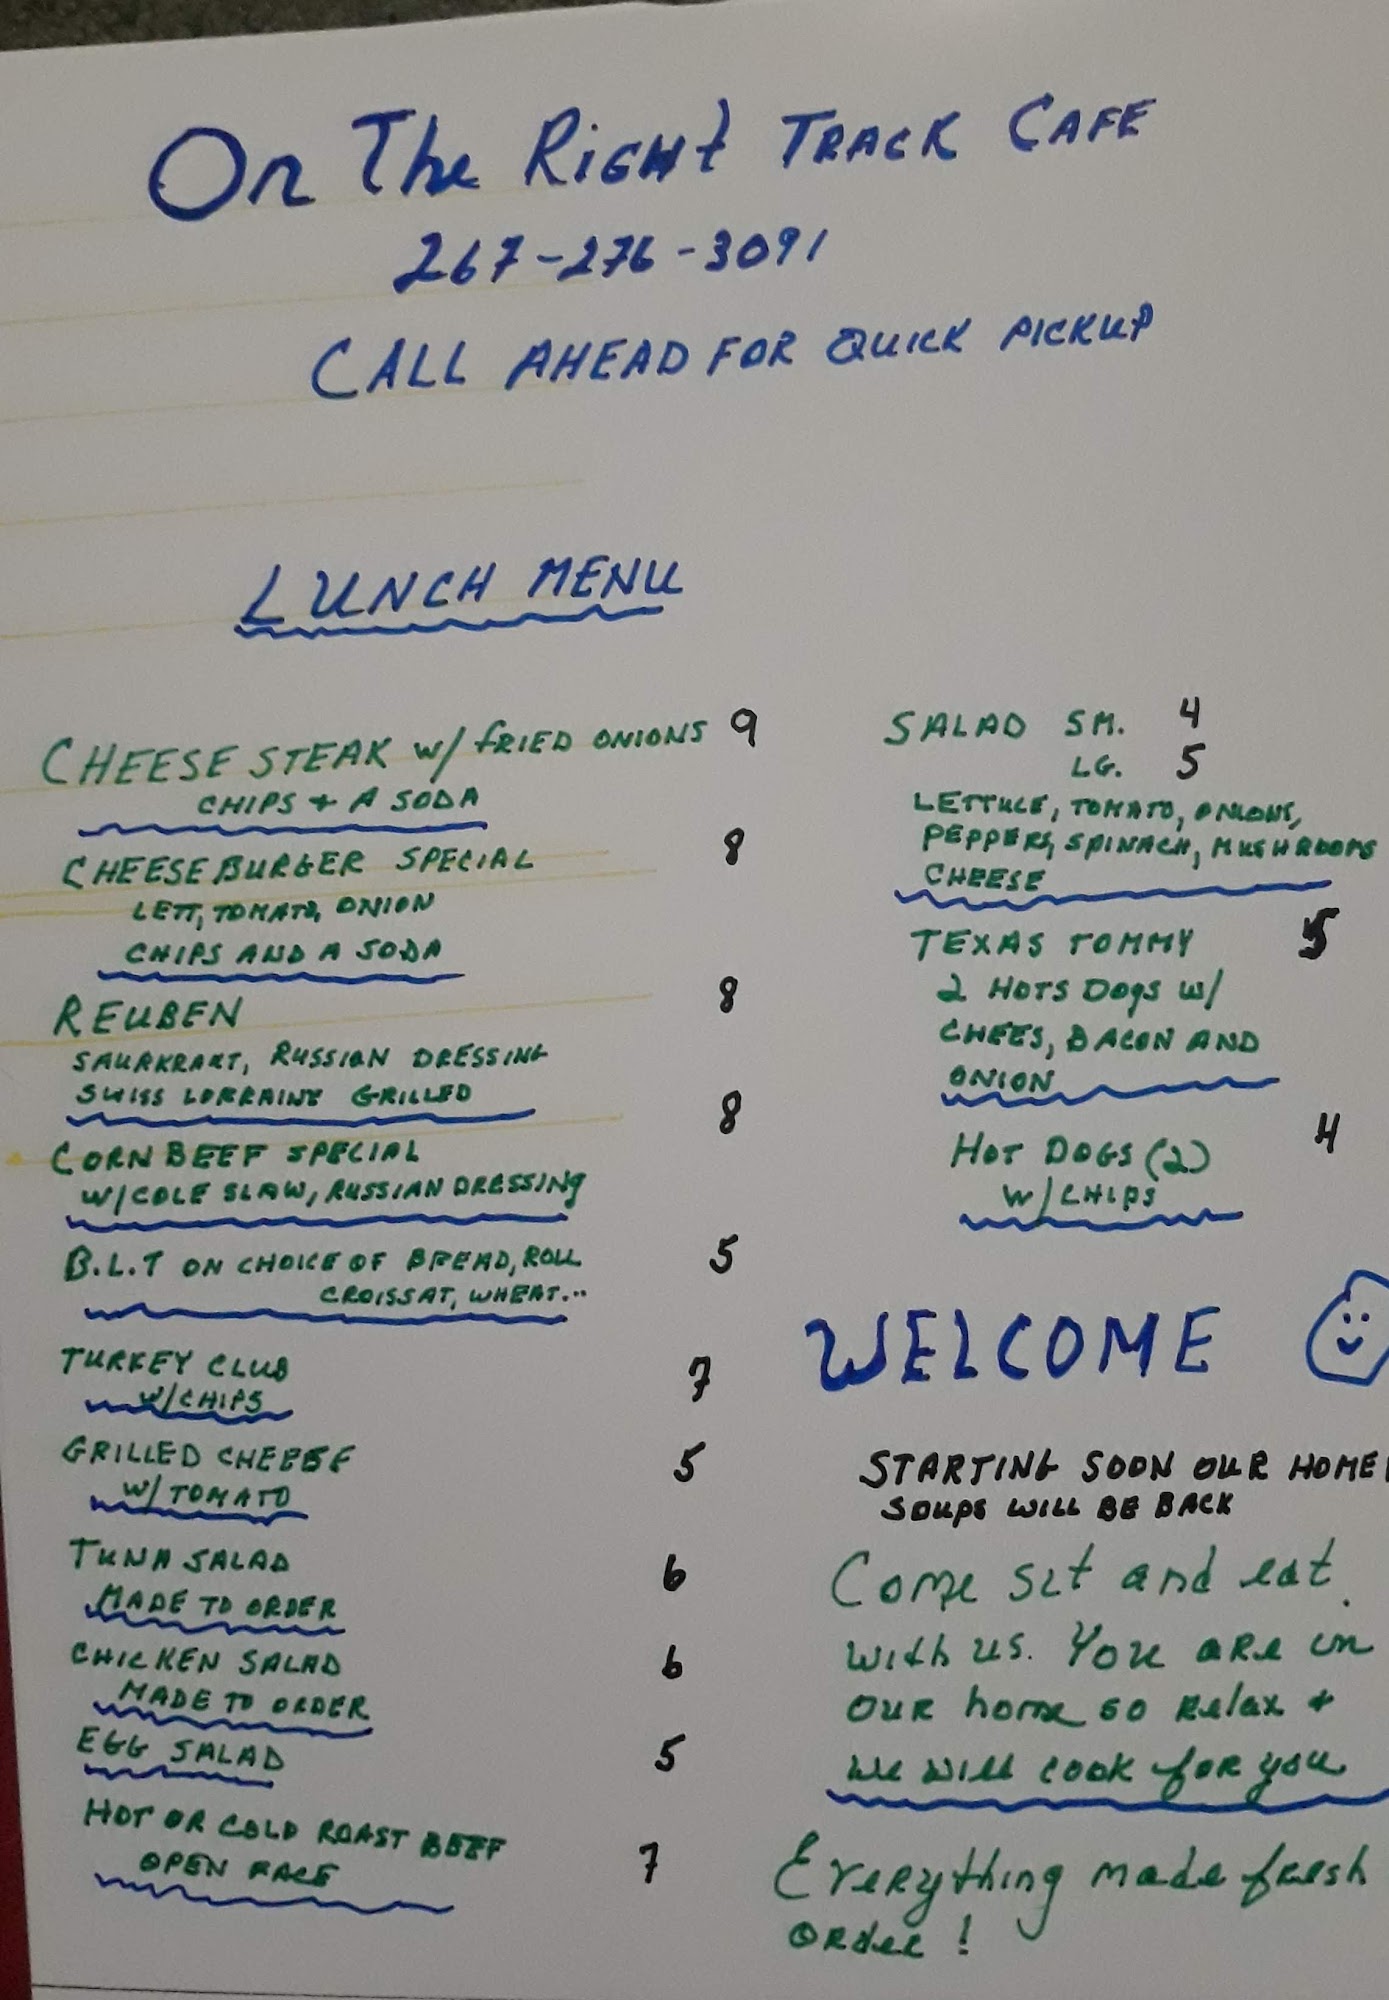 On The Right Track Cafe
267-276-3091
CALL AHEAD FOR QUICK PICKUP
LUNCH MENU
CHEESE STEAK w/ fRIED ONIONS 9
CHIPS + A SODA
CHEESEBURGER SPECIAL 8
LETT, TOMATO, ONION
CHIPS AND A SODA
REUBEN 8
SAURKRAUT, RUSSIAN DRESSING
SWISS LORRAINE GRILLED
CORN BEEF SPECIAL 8
W/COLE SLAW, RUSSIAN DRESSING
B.L.T ON CHOICE OF BREAD, ROLL 5
CROISSAT, WHEAT...
TURKEY CLUB 7
W/CHIPS
GRILLED CHEESE 5
W/TOMATO
TUNA SALAD 6
MADE TO ORDER
CHICKEN SALAD 6
MADE TO ORDER
EGG SALAD 5
HOT OR COLD ROAST BEEF 7
OPEN FACE
SALAD SM. 4
LG. 5
LETTUCE, TOMATO, ONIONS,
PEPPERS, SPINACH, MUSHROOMS
CHEESE
TEXAS TOMMY 5
2 HOTS Dogs w/
CHEES, BACON AND
ONION
HOT DOGS (2) 4
W/CHIPS
WELCOME
STARTING SOON OUR HOME
SOUPS WILL BE BACK
Come sit and eat
with us. You are in
our home so Relax +
we will cook for you
Everything made fresh
order!